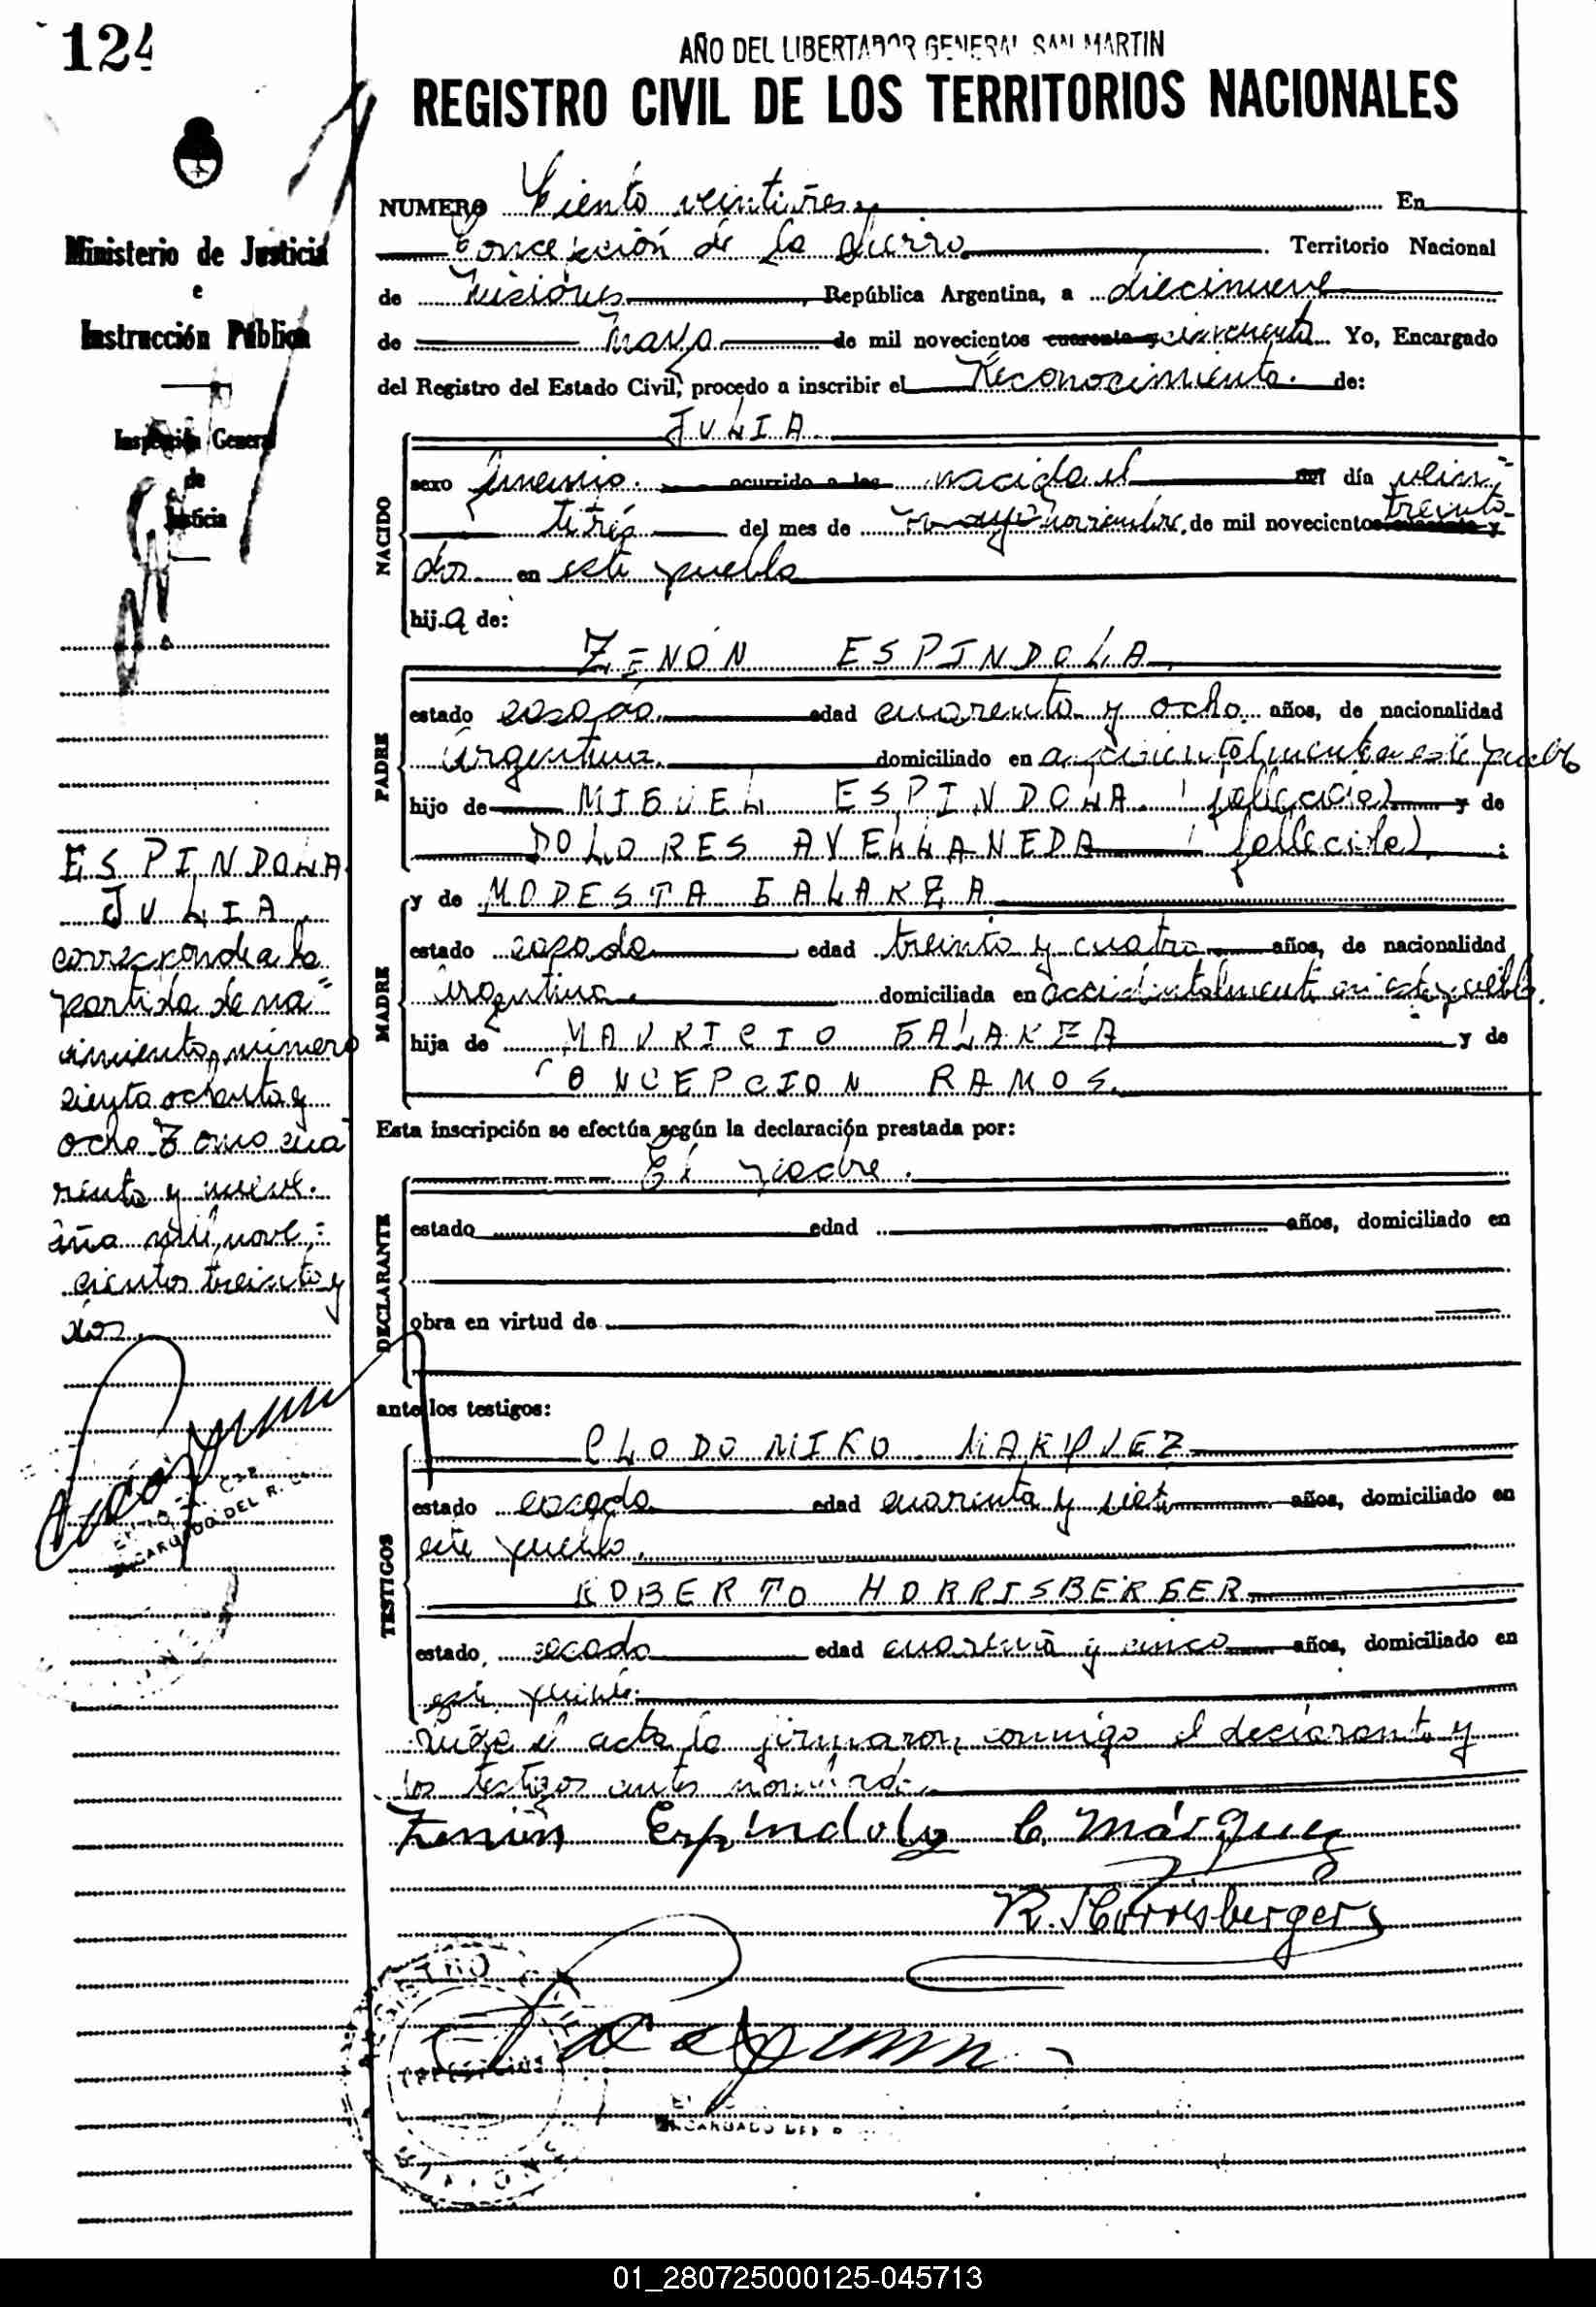 124
AÑO DEL LIBERTADOR GENERAL SAN MARTIN
REGISTRO CIVIL DE LOS TERRITORIOS NACIONALES
Ministerio de Justicia
e
Instrucción Pública
Inspección General
de
Justicia
NUMERO Ciento veintitres En
Concepción de la Sierra Territorio Nacional
de Misiones, República Argentina, a diecinueve
de Mayo de mil novecientos cuarenta y cincuenta Yo, Encargado
del Registro del Estado Civil, procedo a inscribir el Reconocimiento de:
JULIA
NACIDO
sexo femenino. ocurrido a las nacida el del día vein-
titrés del mes de mayo noviembre, de mil novecientos cuarenta y treinta
dos en este pueblo
hija de:
ZENÓN ESPINDOLA
PADRE
estado casado edad cuarenta y ocho años, de nacionalidad
argentina domiciliado en accidentalmente en este pueblo
hijo de MIGUEL ESPINDOLA (fallecido) y de
DOLORES AVELLANEDA (fallecida);
y de MODESTA GALARZA
MADRE
estado casada edad treinta y cuatro años, de nacionalidad
argentina domiciliada en accidentalmente en este pueblo.
hija de MAURICIO GALARZA y de
CONCEPCION RAMOS
Esta inscripción se efectúa según la declaración prestada por:
El padre.
DECLARANTE
estado edad años, domiciliado en
obra en virtud de
ante los testigos:
CLODOMIRO MARQUEZ
TESTIGOS
estado casado edad cuarenta y siete años, domiciliado en
este pueblo.
ROBERTO HORRISBERGER
estado casado edad cuarenta y cinco años, domiciliado en
este pueblo.
el acta la firmaron conmigo el declarante y
los testigos antes nombrados
Zenón Espíndola C. Márquez
R. Horrisberger
ENCARGADO DEL R
ESPINDOLA
JULIA
corresponde a la
partida de na-
cimiento número
ciento ochenta y
ocho Tomo cua
renta y nueve.
año mil nove-
cientos treinta y
dos.
ENCARGADO DEL R. C.
REGISTRO
01_280725000125-045713